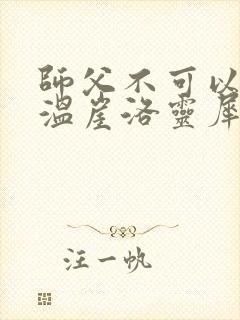 師父不可以
溫崖洛靈犀
汪一帆